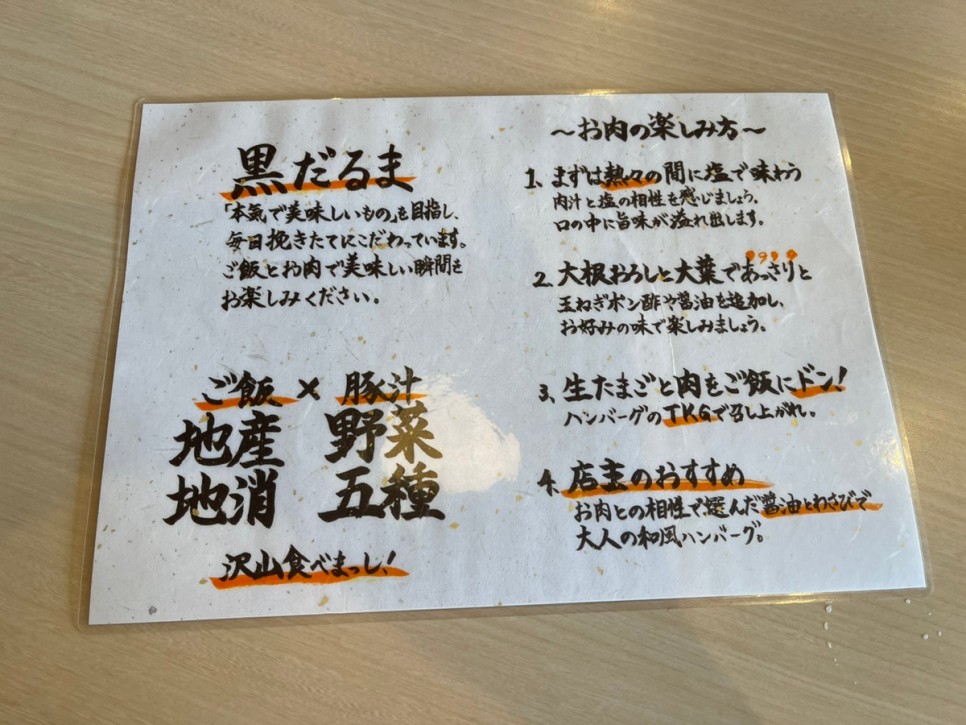 黒だるま
「本気で美味しいもの」を目指し、
毎日挽きたてにこだわっています。
ご飯とお肉で美味しい瞬間を
お楽しみください。
ご飯 × 豚汁
地産 野菜
地消 五種
沢山食べまっし!
〜お肉の楽しみ方〜
1. まずは熱々の間に塩で味わう
肉汁と塩の相性を感じましょう。
口の中に旨味が溢れ出します。
2. 大根おろしと大葉であっさりと
玉ねぎポン酢や醤油を追加し、
お好みの味で楽しみましょう。
3. 生たまごと肉をご飯にドン!
ハンバーグのTKGで召し上がれ。
4. 店主のおすすめ
お肉との相性で選んだ醤油とわさびで
大人の和風ハンバーグ。